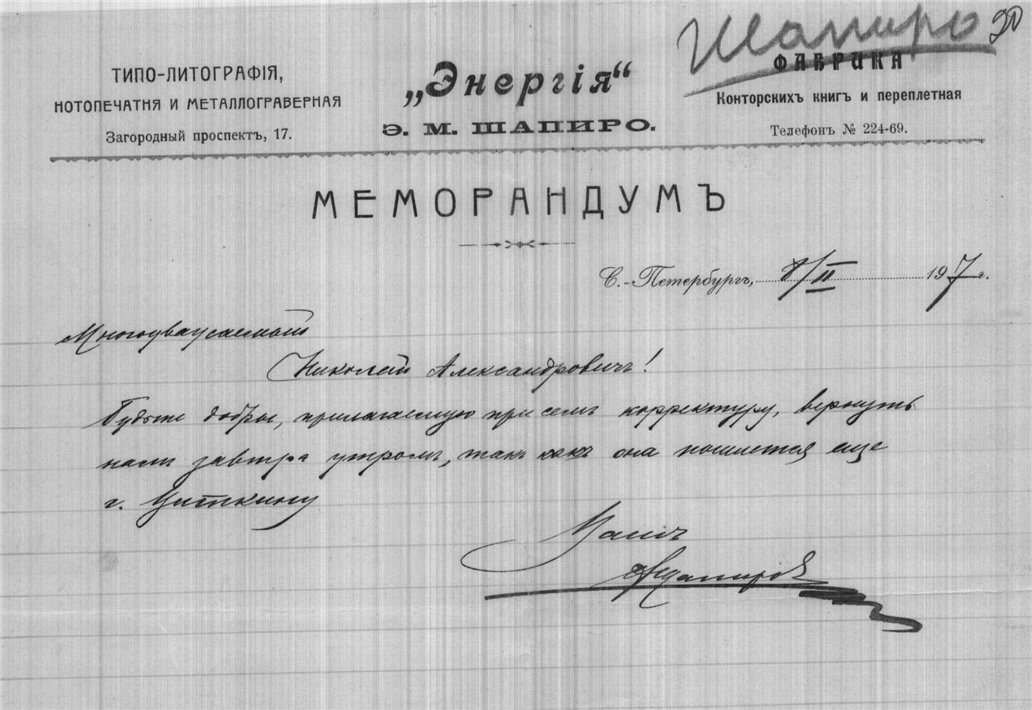 Шапиро
ТИПО-ЛИТОГРАФІЯ,
НОТОПЕЧАТНЯ И МЕТАЛЛОГРАВЕРНАЯ
Загородный проспектъ, 17.
„Энергія“
Э. М. ШАПИРО.
ФАБРИКА
Конторскихъ книгъ и переплетная
Телефонъ № 224-69.
МЕМОРАНДУМЪ
С.-Петербургъ, 8/II 1907 г.
Многоуважаемый
Николай Александровичъ!
Будьте добры, прилагаемую при семъ корректуру, вернуть
намъ завтра утромъ, такъ какъ она пошлется еще
г.
Вашъ
Шапиро